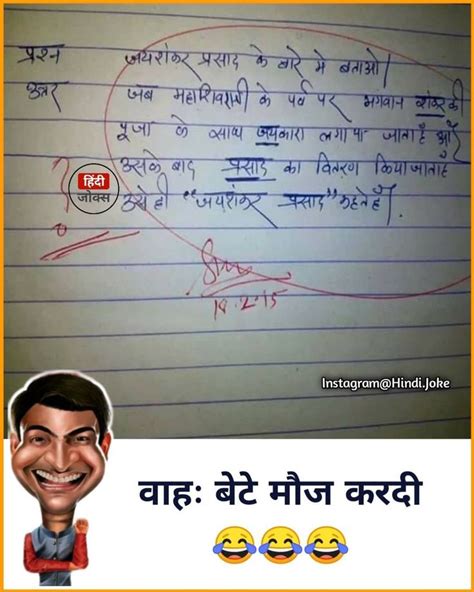 प्रश्न जयशंकर प्रसाद के बारे मे बताओ।
उत्तर जब महाशिवरात्री के पर्व पर भगवान शंकर की
पूजा के साथ जयकारा लगाया जाता है और
उसके बाद प्रसाद का वितरण किया जाता है
उसे ही "जयशंकर प्रसाद" कहते हैं।
हिंदी
जोक्स
2.15
Instagram@Hindi.Joke
वाहः बेटे मौज करदी
😂😂😂